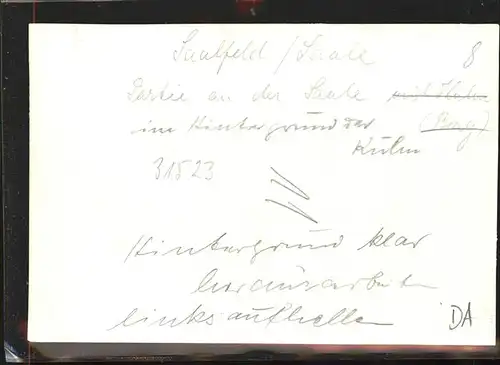 Saalfeld / Saale 8
Partie an der Saale
im Hintergrund der (Berg)
Kulm
31523
Hintergrund klar
herausarbeiten
links aufhellen
DA